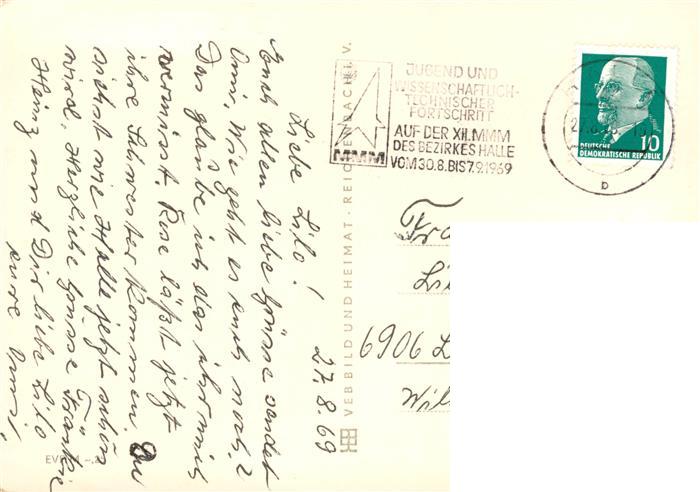 Liebe Lilo!
27.8.69
Euch allen liebe Grüsse sendet
Omi. Wie geht es euch noch?
Das glaube ich das ihr mich
vermisst. Rose läßt jetzt
ihre Schwester kommen. Du
siehst wie Halle jetzt schön
wird. Herzliche Grüsse Frankie
Heinz und Dir liebe Lilo
eure Omi.
EVP
VEB BILD UND HEIMAT · REICHENBACH I. V.
MMM
JUGEND UND
WISSENSCHAFTLICH-
TECHNISCHER
FORTSCHRITT
AUF DER XII. MMM
DES BEZIRKES HALLE
VOM 30.8. BIS 7.9.1969
b
10
DEUTSCHE
DEMOKRATISCHE REPUBLIK
Fra
Li
6906 L
Wil